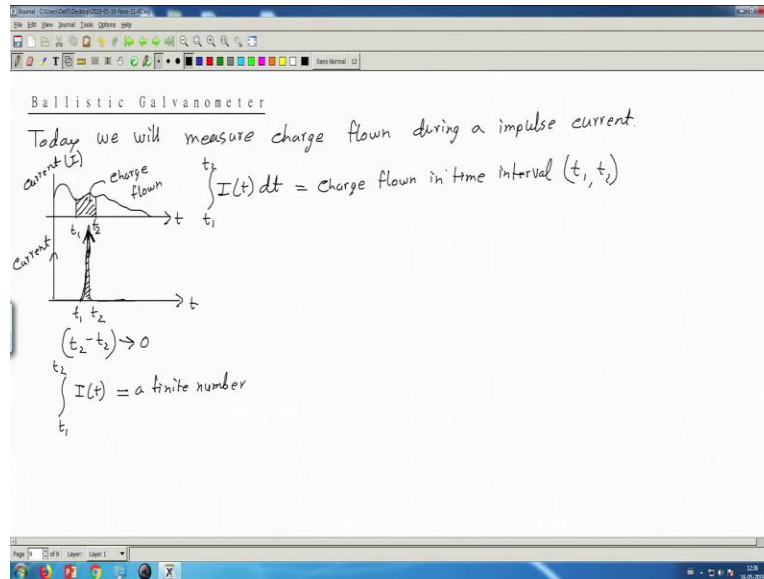 Xournal - C:\Users\Dell\Desktop\2019-05-16-Note-11-42.xoj
File Edit View Journal Tools Options Help
Sans Normal 12
Ballistic Galvanometer
Today we will measure charge flown during a impulse current.
Current (I)
charge
flown
t
t₁ t₂
t₂
∫ I(t) dt = charge flown in time interval (t₁, t₂)
t₁
Current
t
t₁ t₂
(t₂-t₂)→0
t₂
∫ I(t) = a finite number
t₁
Page 9 of 9 Layer: Layer 1
12:36
16-05-2019